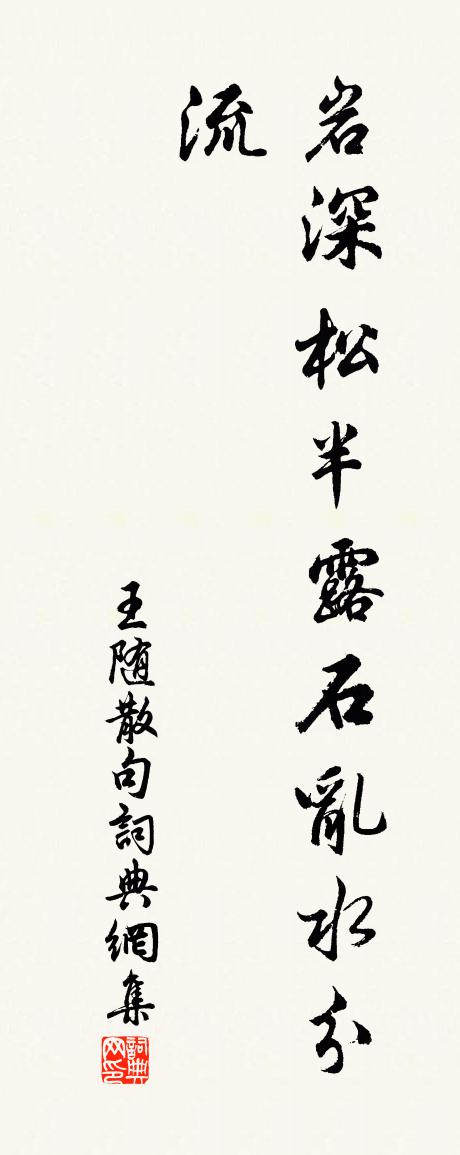 岩深松半露石亂水分
流
王随散句詞典網集
詞典网印